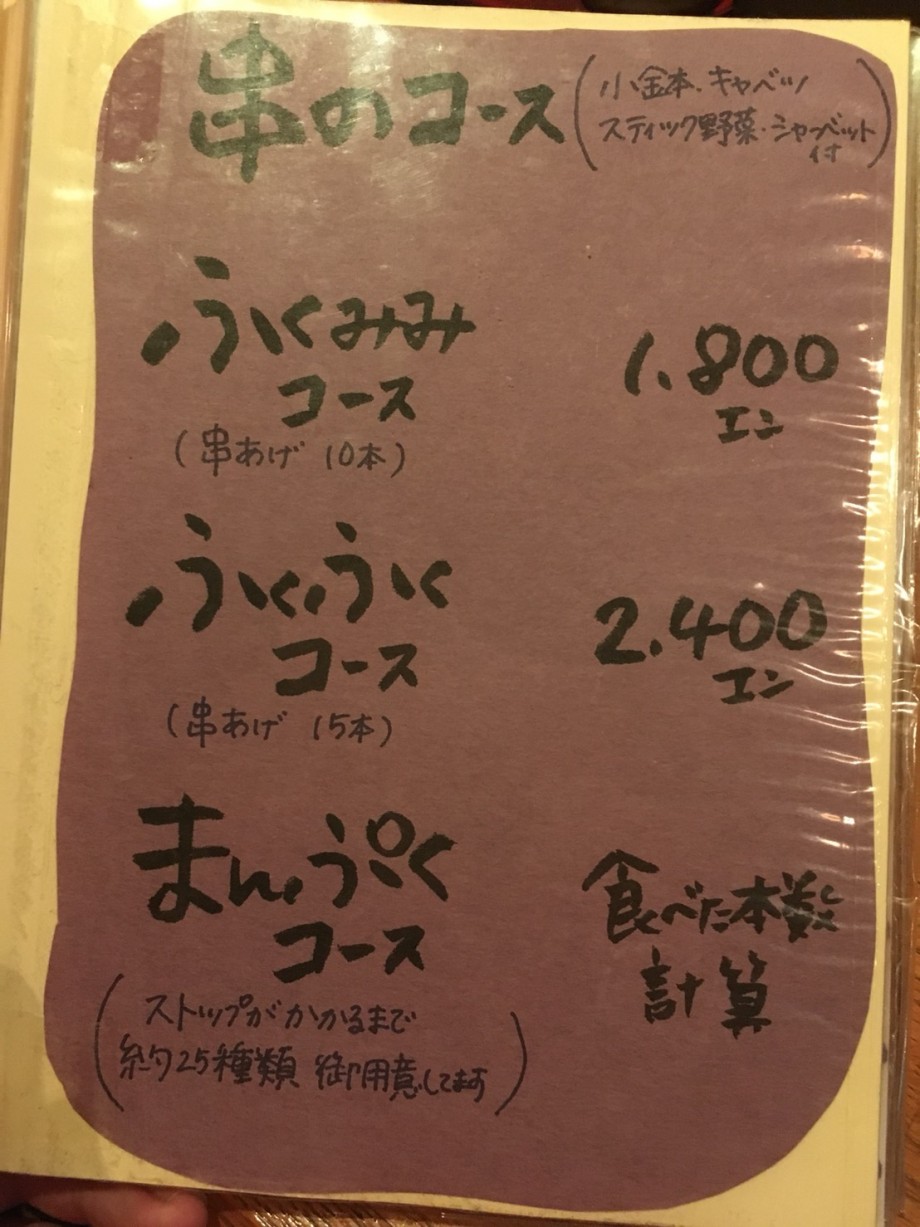 串のコース
(小金本・キャベツ
スティック野菜・シャーベット
付)
ふくみみ
コース
1.800
エン
(串あげ 10本)
ふくふく
コース
2.400
エン
(串あげ 15本)
まんぷく
コース
食べた本数
計算
(ストップがかかるまで
約25種類 御用意してます)